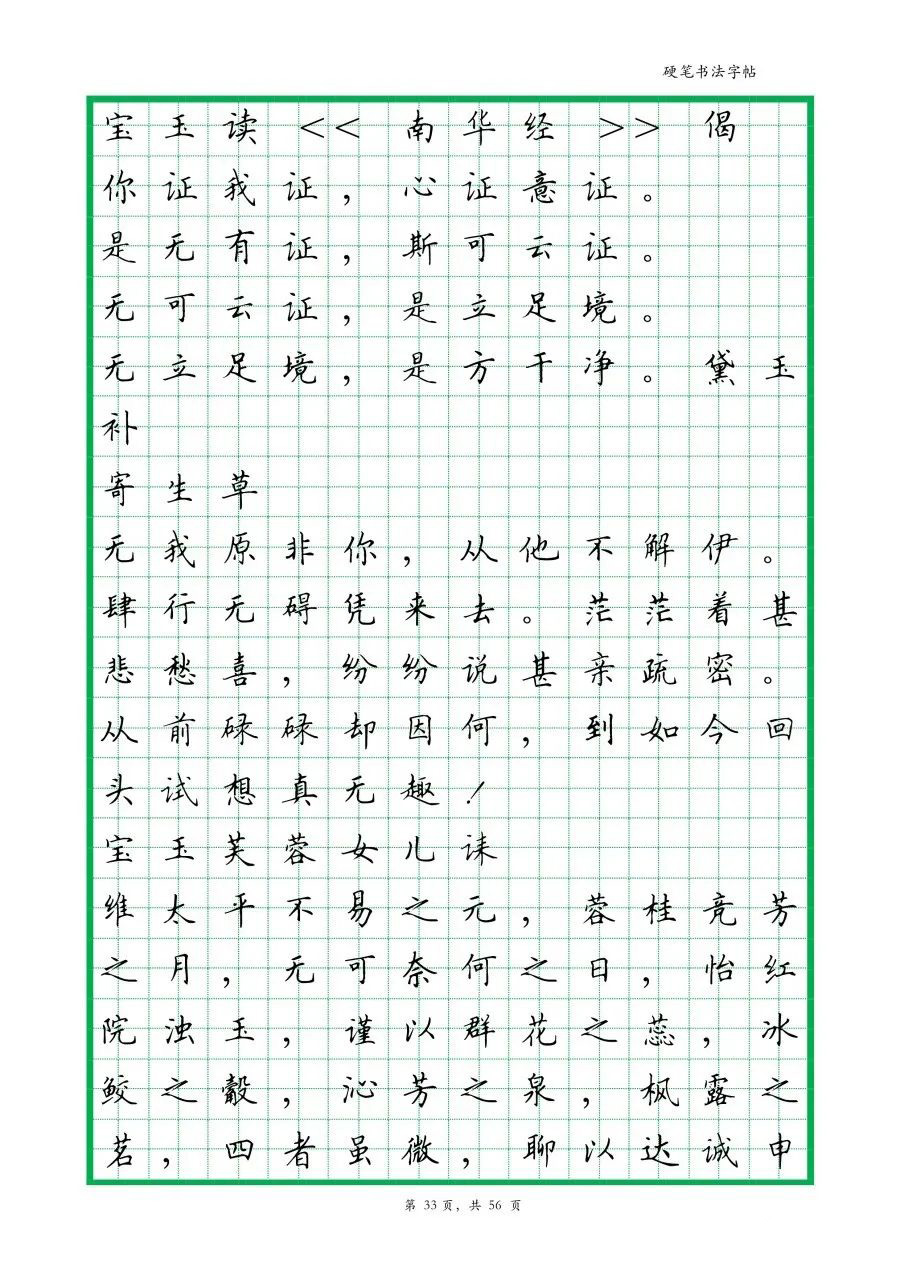 硬笔书法字帖
宝玉读<<南华经>>偈
你证我证，心证意证。
是无有证，斯可云证。
无可云证，是立足境。
无立足境，是方干净。黛玉
补
寄生草
无我原非你，从他不解伊。
肆行无碍凭来去。茫茫着甚
悲愁喜，纷纷说甚亲疏密。
从前碌碌却因何，到如今回
头试想真无趣！
宝玉芙蓉女儿诔
维太平不易之元，蓉桂竞芳
之月，无可奈何之日，怡红
院浊玉，谨以群花之蕊，冰
鲛之縠，沁芳之泉，枫露之
茗，四者虽微，聊以达诚申
第 33 页，共 56 页